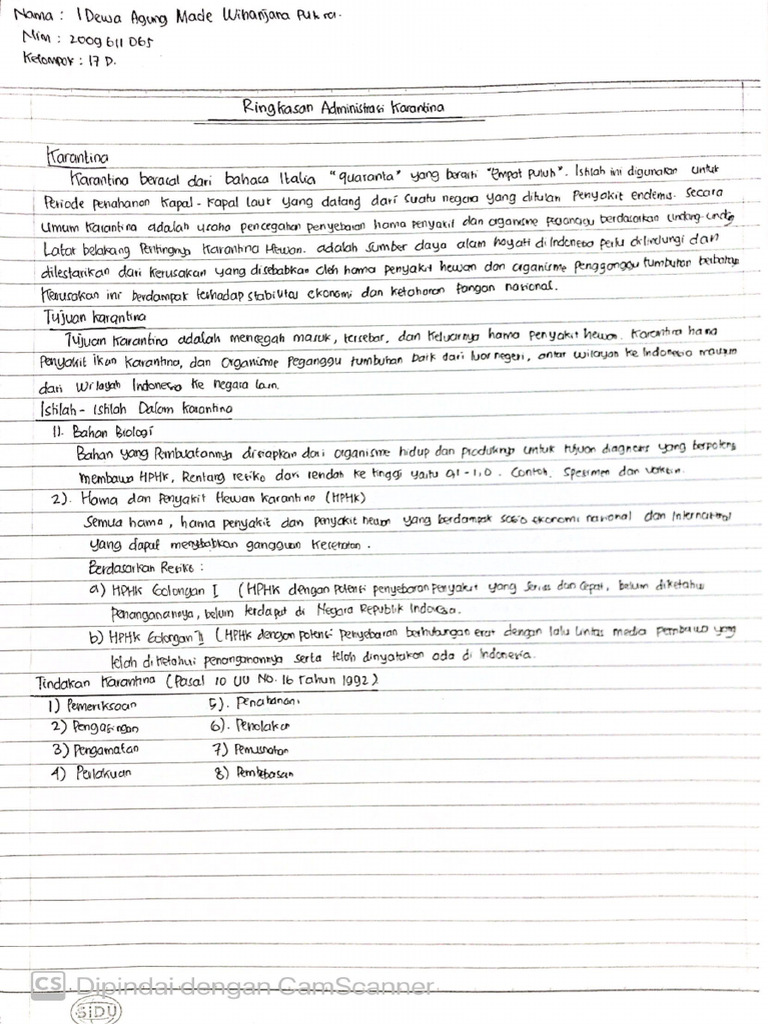 Nama : I Dewa Agung Made Wihanjara Putra.
Nim : 2009611065
Kelompok : 17 D.
Ringkasan Administrasi Karantina
Karantina
Karantina berasal dari bahasa Italia "quaranta" yang berarti "Empat Puluh". Istilah ini digunakan untuk
Periode penahanan kapal-kapal laut yang datang dari suatu negara yang ditulari Penyakit endemis. Secara
Umum Karantina adalah usaha pencegahan penyebaran hama penyakit dan organisme pegangu berdasarkan undang-undang
Latar belakang Pentingnya Karantina Hewan. adalah sumber daya alam hayati di Indonesia perlu dilindungi dan
dilestarikan dari kerusakan yang disebabkan oleh hama penyakit hewan dan organisme pengganggu tumbuhan berbahaya
Kerusakan ini berdampak terhadap stabilitas ekonomi dan ketahanan pangan nasional.
Tujuan karantina
Tujuan Karantina adalah mencegah masuk, tersebar, dan keluarnya hama penyakit hewan. Karantina hama
Penyakit Ikan Karantina, dan Organisme Peganggu tumbuhan baik dari luar negeri, antar wilayah ke Indonesia maupun
dari Wilayah Indonesia ke negara lain.
Istilah - Istilah Dalam Karantina
1). Bahan Biologi
Bahan yang Pembuatannya disiapkan dari organisme hidup dan produknya untuk tujuan diagnosis yang berpotensi
membawa HPHK, Rentang resiko dari rendah ke tinggi yaitu 0,1 - 1,0. Contoh. Spesimen dan vaksin.
2). Hama dan Penyakit Hewan Karantina (HPHK)
Semua hama, hama penyakit dan penyakit hewan yang berdampak sosio ekonomi nasional dan Internasional
yang dapat menyebabkan gangguan kesehatan.
Berdasarkan Resiko :
a) HPHK Golongan I (HPHK dengan Potensi penyebaran Penyakit yang Serius dan Cepat, belum diketahui
Penanganannya, belum terdapat di Negara Republik Indonesia.
b) HPHK Golongan II (HPHK dengan potensi Penyebaran berhubungan erat dengan lalu lintas media pembawa yang
telah diketahui penanganannya serta telah dinyatakan ada di Indonesia.
Tindakan Karantina (Pasal 10 UU No. 16 Tahun 1992)
1) Pemeriksaan 5). Penahanan
2) Pengasingan 6). Penolakan
3) Pengamatan 7) Pemusnahan
4) Perlakuan 8) Pembebasan
CS Dipindai dengan CamScanner
SiDU